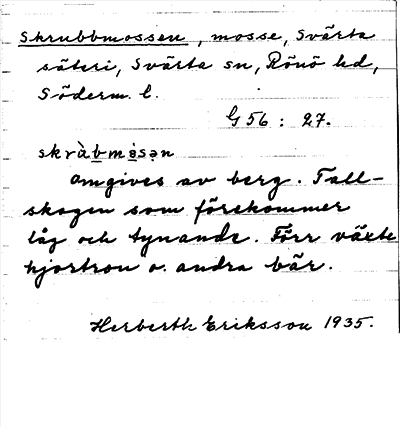 Skrubbmossen, mosse, Svärta
säteri, Svärta sn, Rönö hd,
Söderm. l.
G 56 : 27.
skràbmɔ̀sən
Omgives av berg. Tall-
skogen som förekommer
låg och tynande. Förr växte
hjortron o. andra bär.
Herberth Eriksson 1935.